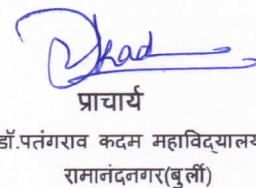 प्राचार्य
डॉ.पतंगराव कदम महाविद्यालय
रामानंदनगर(बुर्ली)